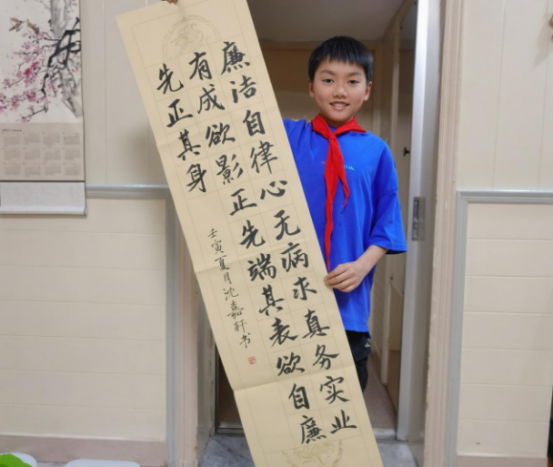 廉洁自律心无病求真务实业
有成欲影正先端其表欲自廉
先正其身
壬寅夏月沈嘉轩书